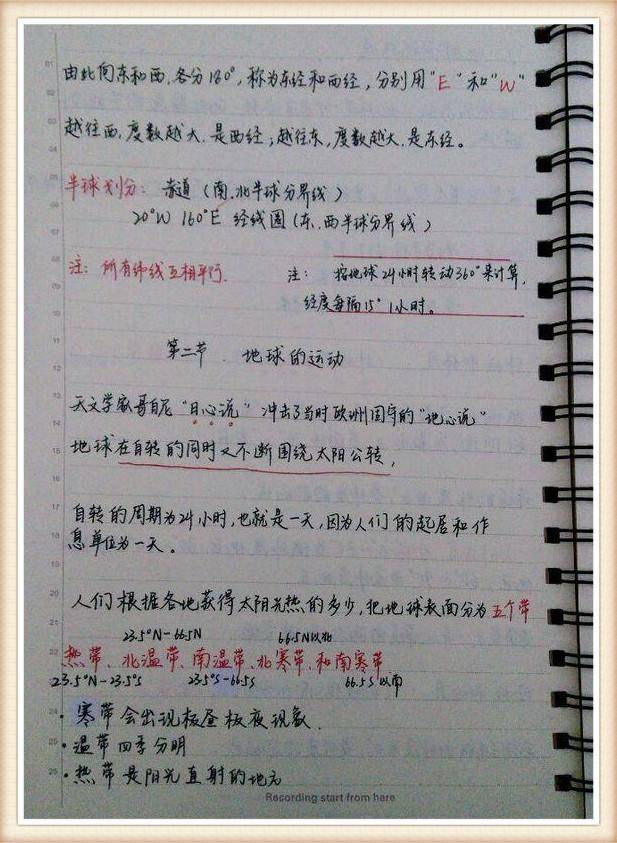 由此向东和西,各分180°,称为东经和西经,分别用"E"和"W"
越往西,度数越大,是西经;越往东,度数越大,是东经。
半球划分:赤道(南、北半球分界线)
20°W 160°E 经线圈(东、西半球分界线)
注:所有纬线互相平行.
注:按地球24小时转动360°来计算,
经度每隔15° 1小时。
第二节 地球的运动
天文学家哥白尼"日心说"冲击了当时欧洲国家的"地心说"
地球在自转的同时又不断围绕太阳公转,
自转的周期为24小时,也就是一天,因为人们的起居和作
息单位为一天。
人们根据各地获得太阳光热的多少,把地球表面分为五个带
23.5°N-66.5N 66.5N以北
热带、北温带、南温带、北寒带、和南寒带
23.5°N-23.5°S 23.5°S-66.5S 66.5S以南
·寒带会出现极昼极夜现象.
·温带四季分明
·热带是阳光直射的地方
Recording start from here